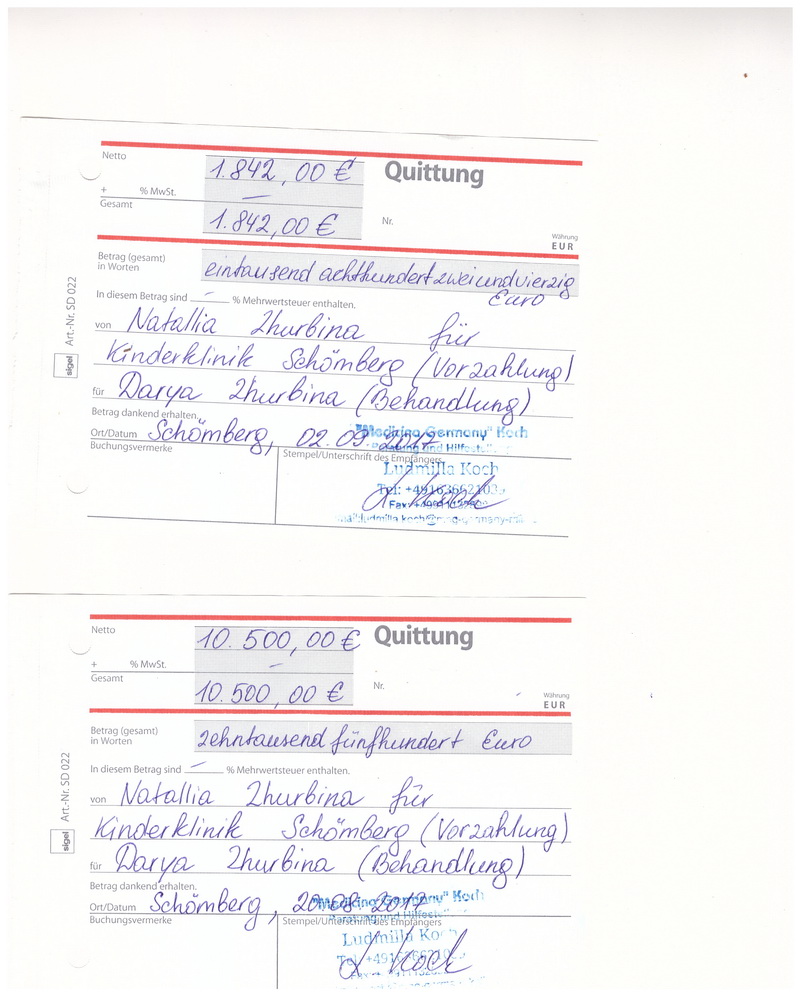 Netto
1.842,00 €
Quittung
+ % MwSt. —
Gesamt
1.842,00 €
Nr.
Währung
EUR
Betrag (gesamt)
in Worten
eintausend achthundertzweiundvierzig
Euro
In diesem Betrag sind — % Mehrwertsteuer enthalten.
von Natallia Zhurbina für
Kinderklinik Schömberg (Vorzahlung)
für Darya Zhurbina (Behandlung)
Betrag dankend erhalten.
Ort/Datum Schömberg, 02.09.2017
"Medicina Germany" Koch
Buchungsvermerke
Stempel/Unterschrift des Empfängers
Ludmilla Koch
Tel:
Fax:
sigel Art.-Nr. SD 022
Netto
10.500,00 €
Quittung
+ % MwSt. —
Gesamt
10.500,00 €
Nr.
Währung
EUR
Betrag (gesamt)
in Worten
zehntausend fünfhundert Euro
In diesem Betrag sind — % Mehrwertsteuer enthalten.
von Natallia Zhurbina für
Kinderklinik Schömberg (Vorzahlung)
für Darya Zhurbina (Behandlung)
Betrag dankend erhalten.
Ort/Datum Schömberg,
Germany" Koch
Buchungsvermerke
Stempel/Unterschrift des Empfängers
Ludmilla Koch
L. Koch
sigel Art.-Nr. SD 022